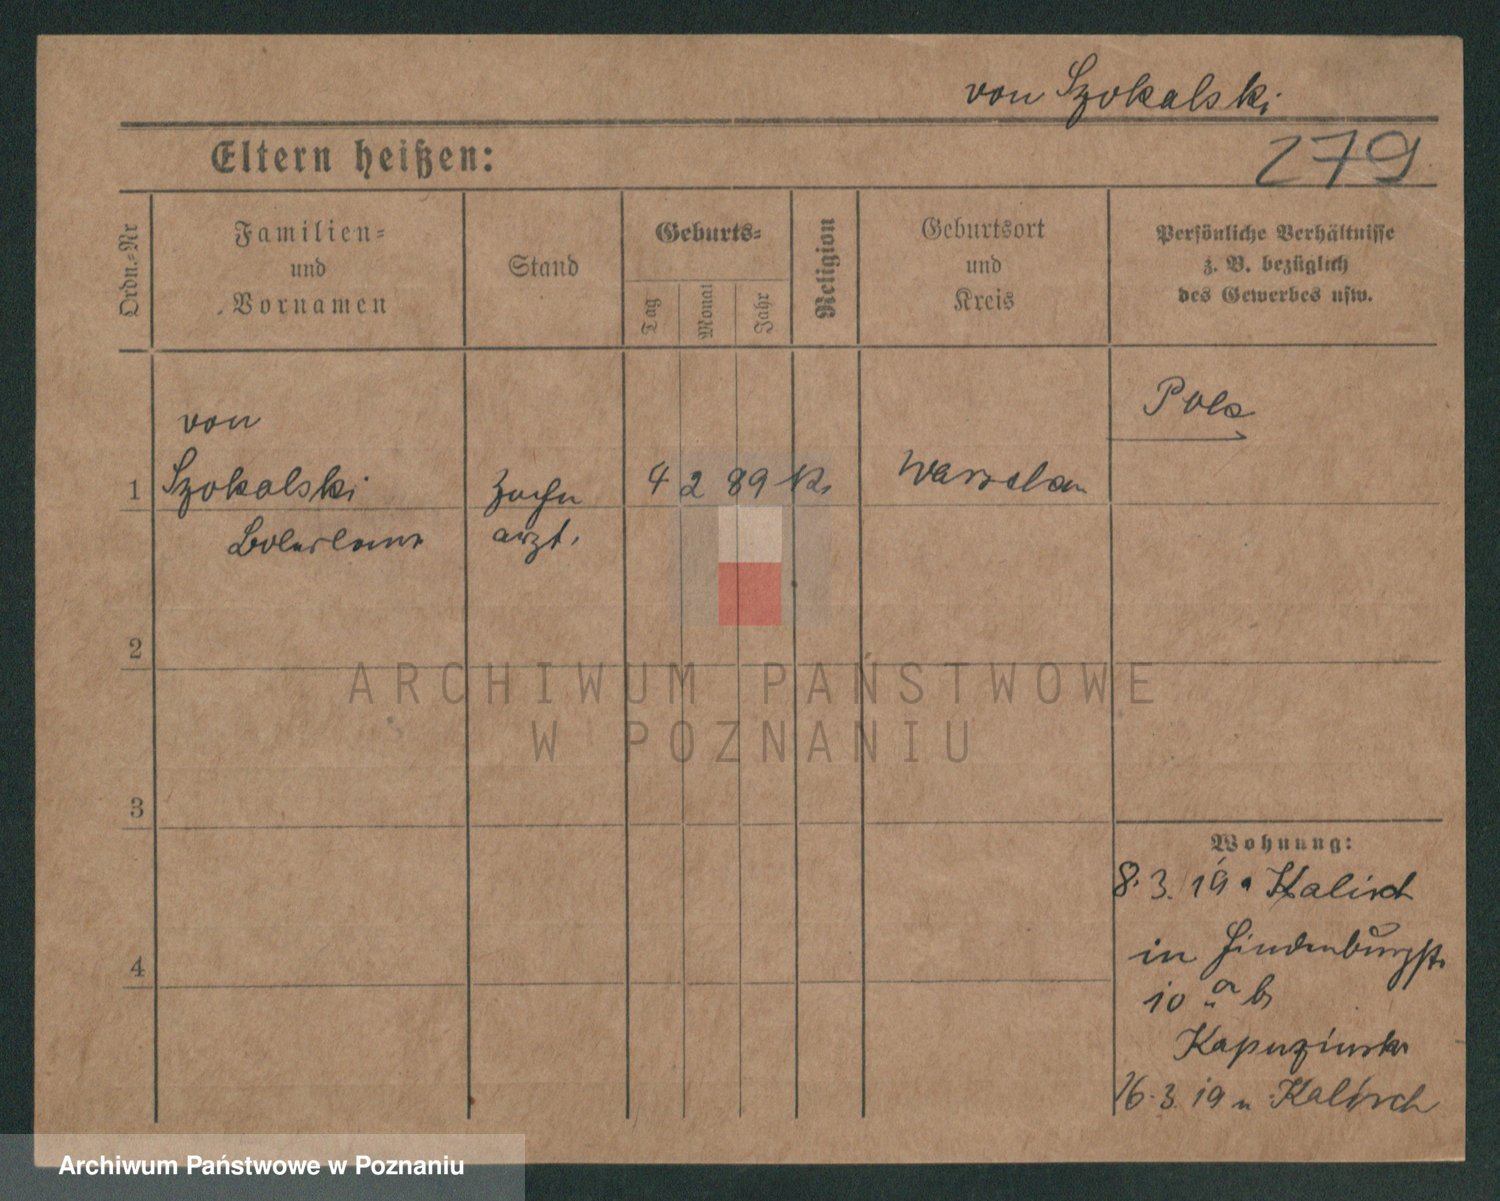 von Szokalski
Eltern heißen:
279
Ordn.-Nr
Familien-
und
Vornamen
Stand
Geburts-
Tag
Monat
Jahr
Religion
Geburtsort
und
Kreis
Persönliche Verhältnisse
z. B. bezüglich
des Gewerbes usw.
Pole
von
1 Szokalski Zahn 4 2 89 K. Warschau
Boleslaus arzt.
2
3
4
Wohnung:
8.3.19 Kalisch
in Hindenburgstr
10 a b
Kapuzinski
26.3.19 n Kalisch
ARCHIWUM PAŃSTWOWE
W POZNANIU
Archiwum Państwowe w Poznaniu